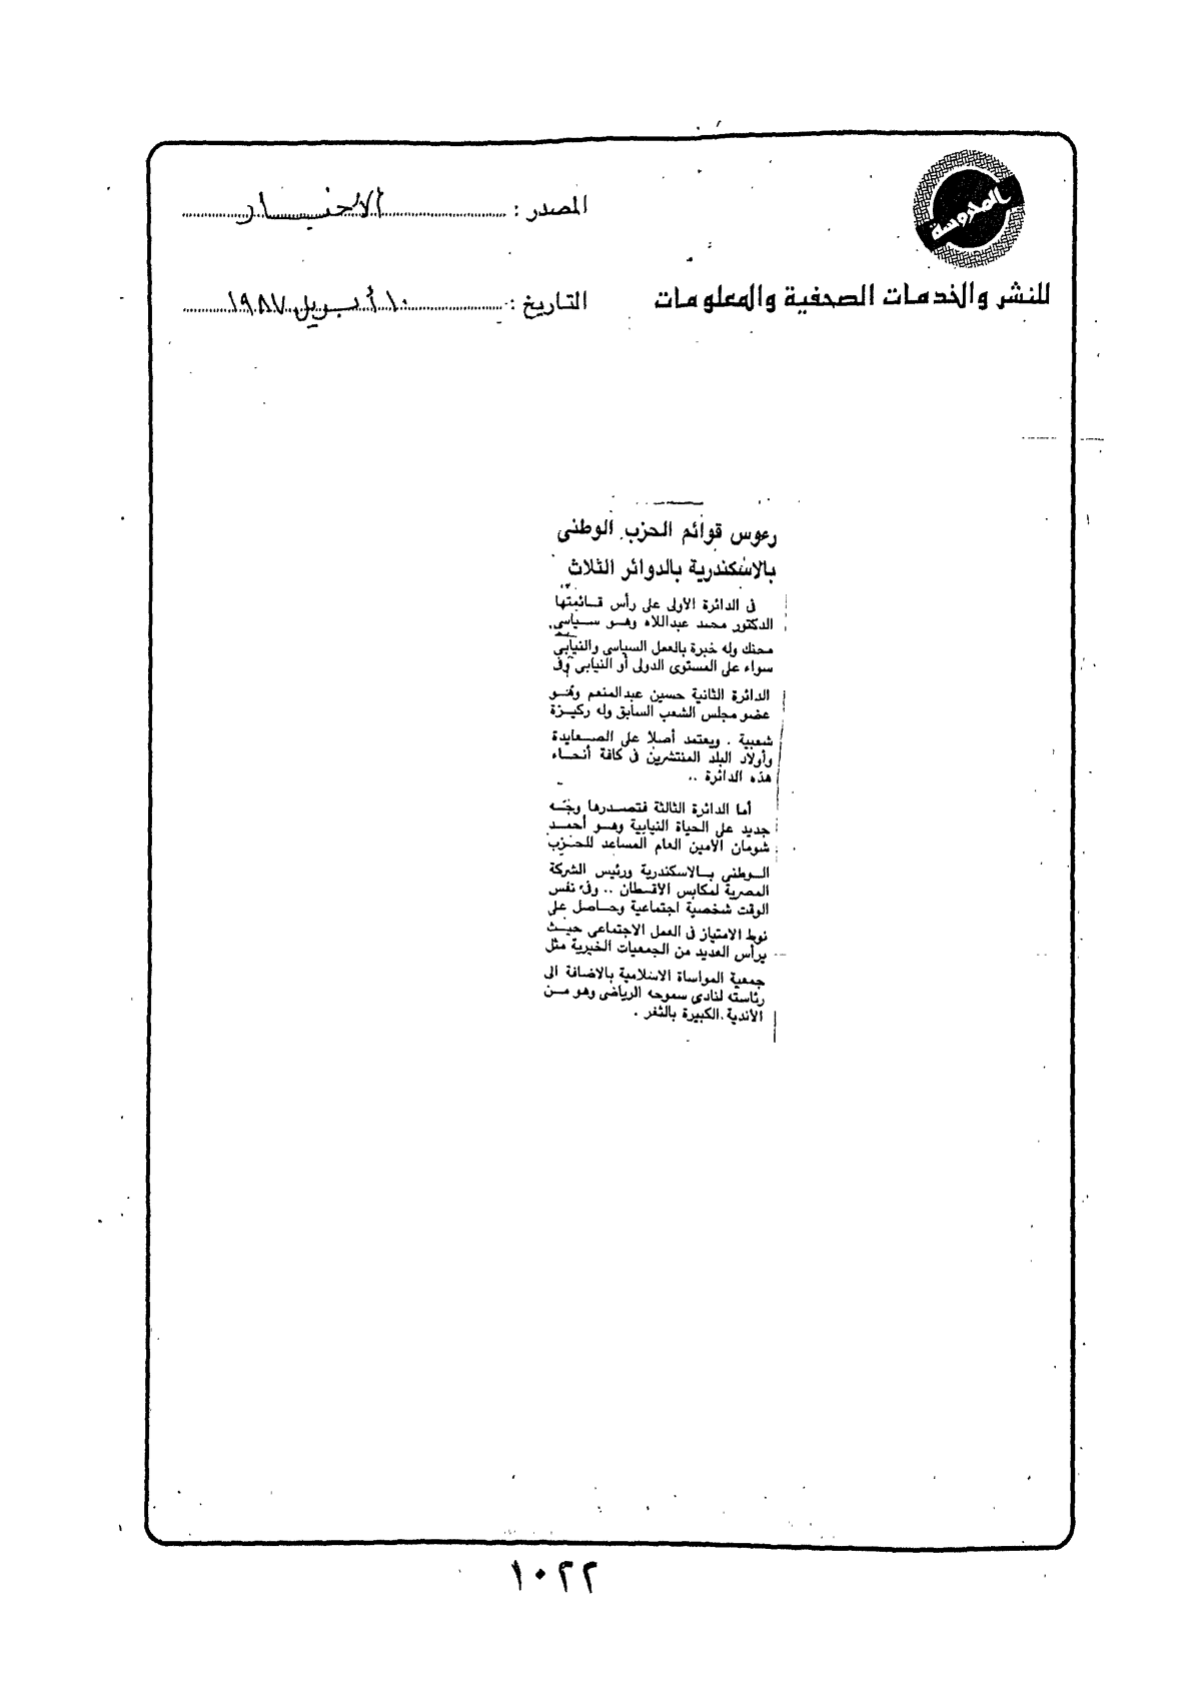 المحروسة
للنشر والخدمات الصحفية والمعلومات
المصدر : الأخبار
التاريخ : ١٠ أبريل ١٩٨٧
رءوس قوائم الحزب الوطنى
بالاسكندرية بالدوائر الثلاث
فى الدائرة الأولى على رأس قائمتها
الدكتور محمد عبداللاه وهو سياسى
محنك وله خبرة بالعمل السياسى والنيابى
سواء على المستوى الدولى أو النيابى وفى
الدائرة الثانية حسين عبدالمنعم وهو
عضو مجلس الشعب السابق وله ركيزة
شعبية . ويعتمد أصلا على الصعايدة
وأولاد البلد المنتشرين فى كافة أنحاء
هذه الدائرة ..
أما الدائرة الثالثة فتصدرها وجه
جديد على الحياة النيابية وهو أحمد
شومان الأمين العام المساعد للحزب
الوطنى بالاسكندرية ورئيس الشركة
المصرية لمكابس الاقطان .. وفى نفس
الوقت شخصية اجتماعية وحاصل على
نوط الامتياز فى العمل الاجتماعى حيث
يرأس العديد من الجمعيات الخيرية مثل
جمعية المواساة الاسلامية بالاضافة الى
رئاسته لنادى سموحه الرياضى وهو من
الأندية الكبيرة بالثغر .
١٠٢٢